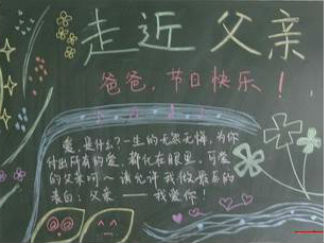 走近父亲
爸爸,节日快乐!
爱,是什么?一生的无怨无悔,为你
付出所有的爱,都化在眼里,可爱
的父亲呵~请允许我做最真的
表白:父亲——我爱你!